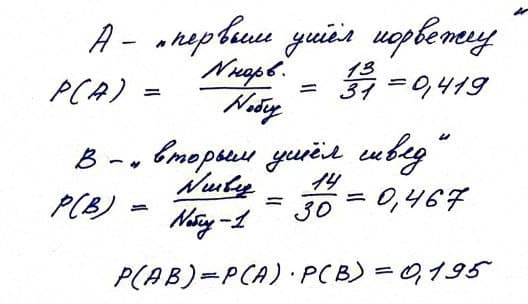 A – „первым ушёл норвежец“
P(A) = Nнорв. / Nобщ = 13/31 = 0,419
B – „вторым ушёл швед“
P(B) = Nшвед / Nобщ – 1 = 14/30 = 0,467
P(AB) = P(A) · P(B) = 0,195